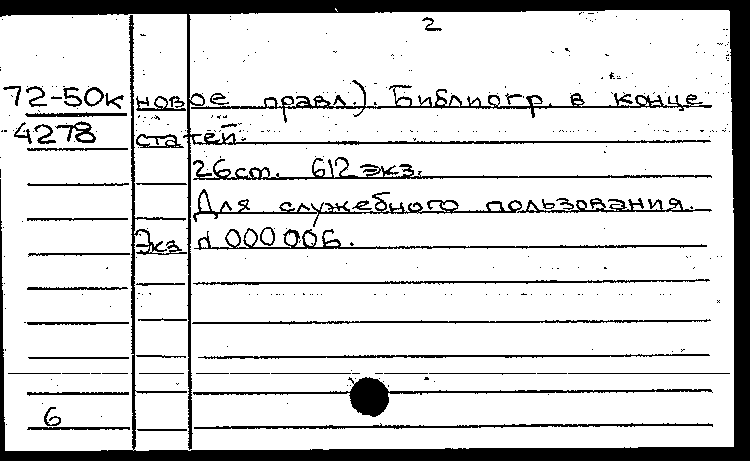 2
72-50к новое правл.). Библиогр. в конце
4278 статей.
26 см. 612 экз.
Для служебного пользования.
Экз № 000006.
6